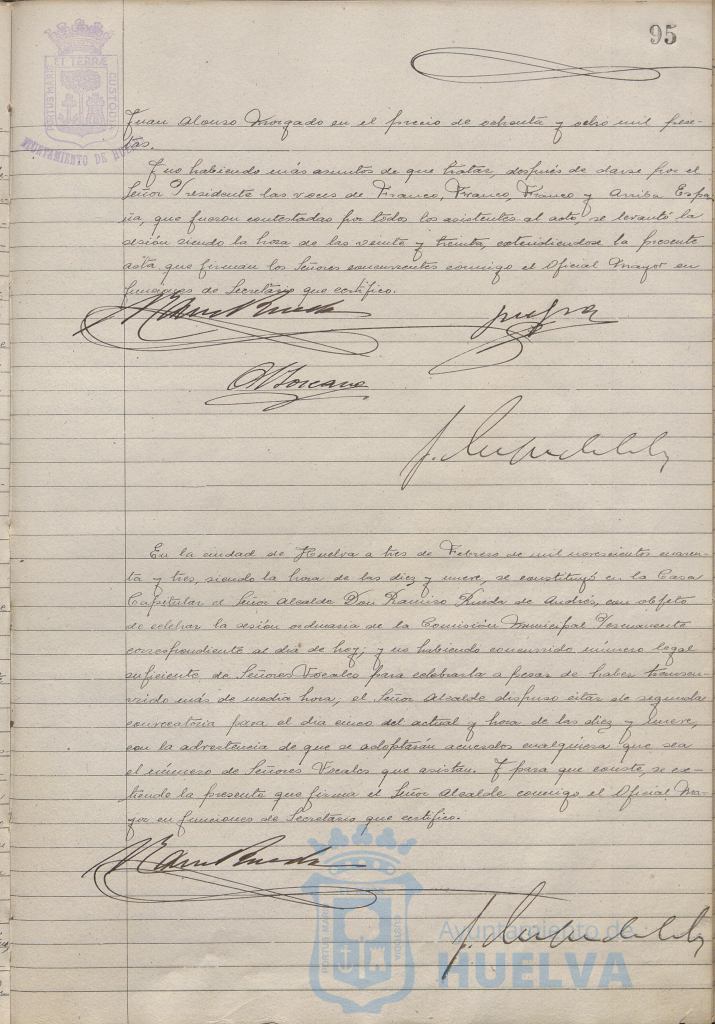 95
ET TERRÆ
PORTUS MARIS
CUSTODIA
AYUNTAMIENTO DE HUELVA
Juan Alonso Morgado en el precio de ochenta y ocho mil pese-
tas.
Y no habiendo más asuntos de que tratar, después de darse por el
Señor Presidente las voces de Franco, Franco, Franco y Arriba Espa-
ña, que fueron contestadas por todos los asistentes al acto, se levantó la
sesión siendo la hora de las veinte y treinta, extendiéndose la presente
acta, que firman los Señores concurrentes conmigo el Oficial Mayor en
funciones de Secretario que certifico.
En la ciudad de Huelva a tres de Febrero de mil novecientos cuaren-
ta y tres, siendo la hora de las diez y nueve, se constituyó en la Casa
Capitular el Señor Alcalde Don Ramiro Rueda de Andrés, con objeto
de celebrar la sesión ordinaria de la Comisión Municipal Permanente
correspondiente al día de hoy; y no habiendo concurrido número legal
suficiente de Señores Vocales para celebrarla a pesar de haber transcu-
rrido más de media hora; el Señor Alcalde dispuso citar de segunda
convocatoria para el día cinco del actual y hora de las diez y nueve,
con la advertencia de que se adoptarán acuerdos cualquiera que sea
el número de Señores Vocales que asistan. Y para que conste, se ex-
tiende la presente que firma el Señor Alcalde conmigo el Oficial Ma-
yor en funciones de Secretario que certifico.
PORTUS MARIS
CUSTODIA
Ayuntamiento de
HUELVA